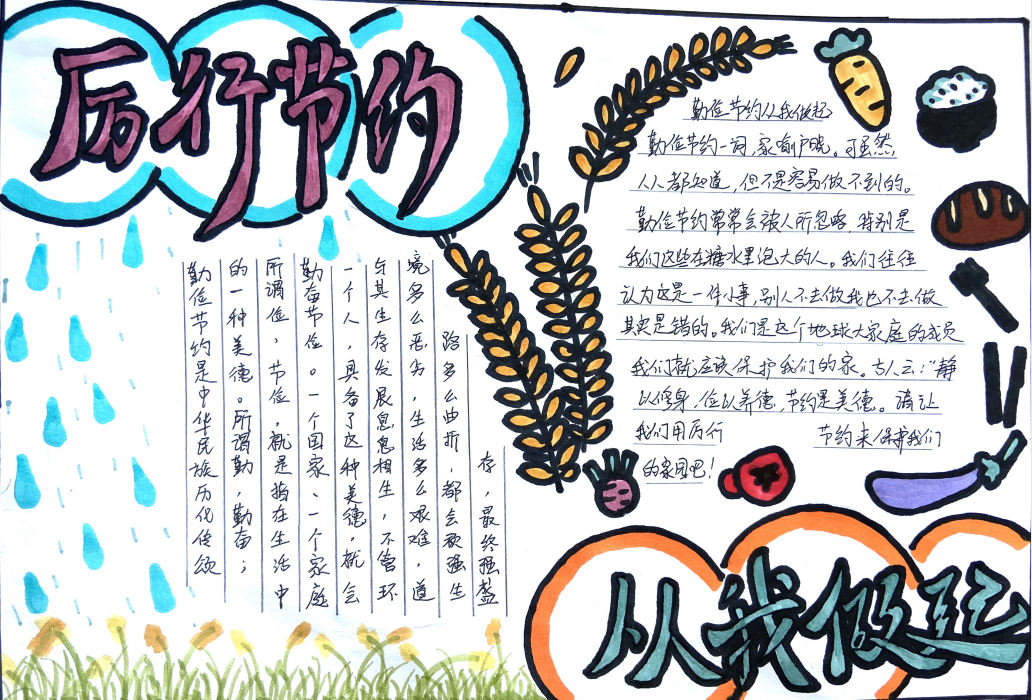 厉行节约
勤俭节约是中华民族历代传颂
的一种美德。所谓勤，勤奋；
所谓俭，节俭，就是指在生活中
勤奋节俭。一个国家、一个家庭
一个人，具备了这种美德，就会
与其生存发展息息相生，不管环
境多么恶劣，生活多么艰难，道
路多么曲折，都会顽强生
存，最终强盛
勤俭节约从我做起
勤俭节约一词，家喻户晓。可虽然
人人都知道，但不是容易做不到的。
勤俭节约常常会被人所忽略，特别是
我们这些在糖水里泡大的人。我们往往
认为这是一件小事，别人不去做我也不去做
其实是错的。我们是这个地球大家庭的成员
我们就应该保护我们的家。古人云：“静
以修身，俭以养德，节约是美德。请让
我们用厉行 节约来保护我们
的家园吧！
从我做起